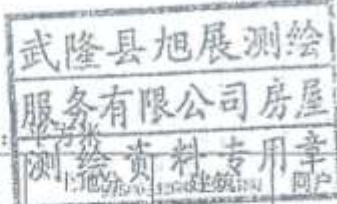 武隆县旭展测绘
服务有限公司房屋
测绘资料专用章